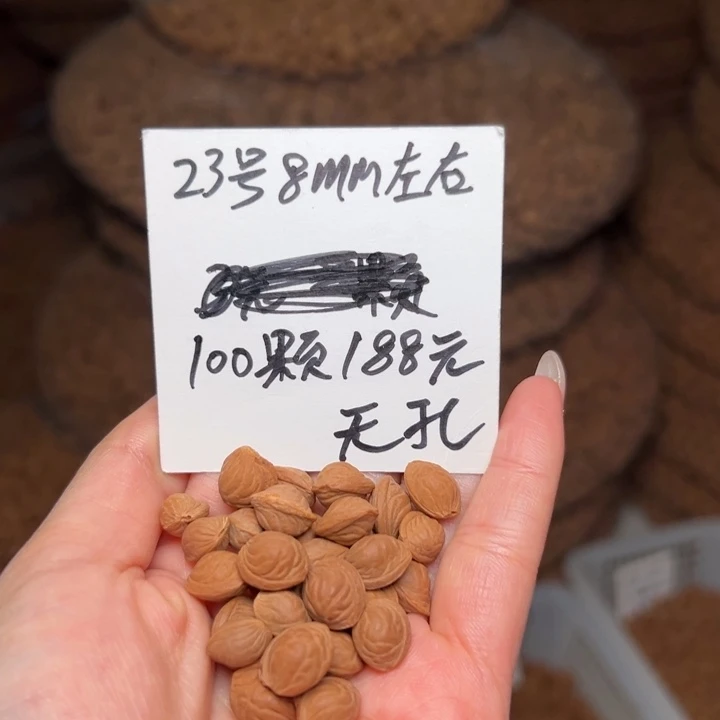 23号8mm左右
100颗188元
无孔